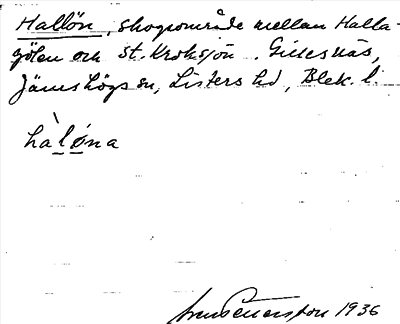 Hallön, skogsområde mellan Halla-
gölen och St. Kroksjön. Gillesnäs,
Jämshögs sn, Listers hd, Blek. l.
hàløna
1936